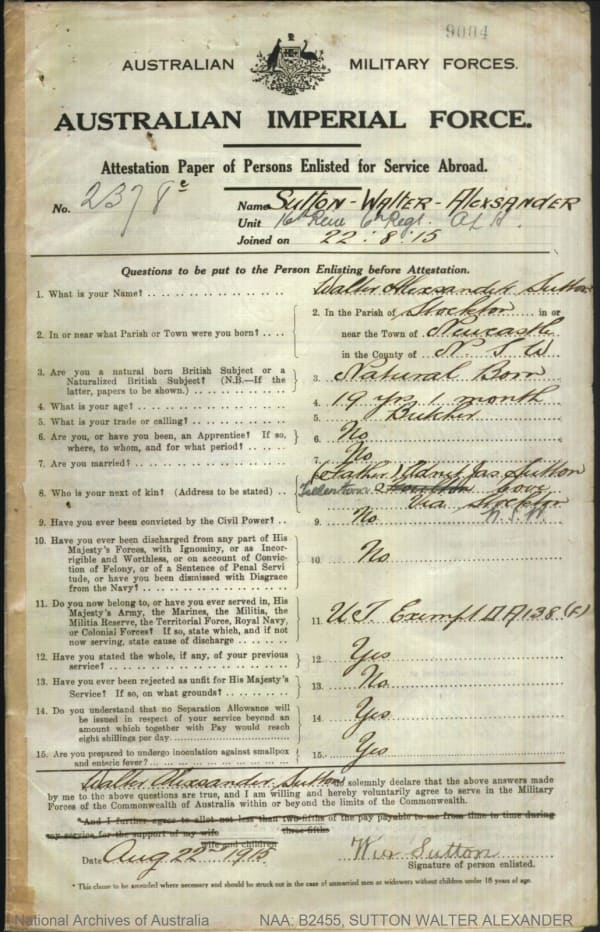 9004
AUSTRALIAN MILITARY FORCES.
AUSTRALIAN IMPERIAL FORCE.
Attestation Paper of Persons Enlisted for Service Abroad.
No. 2378
Name Sutton - Walter - Alexsander
Unit 16th Rein 6th Regt. A L H.
Joined on 22 : 8 : 15
Questions to be put to the Person Enlisting before Attestation.
1. What is your Name? Walter Alexsander Sutton
2. In or near what Parish or Town were you born? 2. In the Parish of Stockton in or
near the Town of Newcastle
in the County of N. S. W
3. Are you a natural born British Subject or a
Naturalized British Subject? (N.B.—If the
latter, papers to be shown.) 3. Natural Born
4. What is your age? 4. 19 yrs 1 month
5. What is your trade or calling? 5. Butcher
6. Are you, or have you been, an Apprentice? If so,
where, to whom, and for what period? 6. No
7. Are you married? 7. No
8. Who is your next of kin? (Address to be stated) (Father) Jas Sutton
Cove
Via Stockton
N.S.W.
9. Have you ever been convicted by the Civil Power? 9. No
10. Have you ever been discharged from any part of His
Majesty's Forces, with Ignominy, or as Incor-
rigible and Worthless, or on account of Convic-
tion of Felony, or of a Sentence of Penal Servi
tude, or have you been dismissed with Disgrace
from the Navy? 10 No
11. Do you now belong to, or have you ever served in, His
Majesty's Army, the Marines, the Militia, the
Militia Reserve, the Territorial Force, Royal Navy,
or Colonial Forces? If so, state which, and if not
now serving, state cause of discharge 11. U.T. Exempt A138 (F)
12. Have you stated the whole, if any, of your previous
service? 12. Yes
13. Have you ever been rejected as unfit for His Majesty's
Service? If so, on what grounds? 13. No
14. Do you understand that no Separation Allowance will
be issued in respect of your service beyond an
amount which together with Pay would reach
eight shillings per day 14 Yes
15. Are you prepared to undergo inoculation against smallpox
and enteric fever? 15. Yes
Walter Alexsander Sutton do solemnly declare that the above answers made
by me to the above questions are true, and I am willing and hereby voluntarily agree to serve in the Military
Forces of the Commonwealth of Australia within or beyond the limits of the Commonwealth.
*And I further agree to allot not less than two-fifths of the pay payable to me from time to time during
three-fifths
my service for the support of my wife
wife and children
Date Aug 22nd 1915
Wm Sutton
Signature of person enlisted.
* This clause to be amended where necessary and should be struck out in the case of unmarried men or widowers without children under 18 years of age.
National Archives of Australia NAA: B2455, SUTTON WALTER ALEXANDER